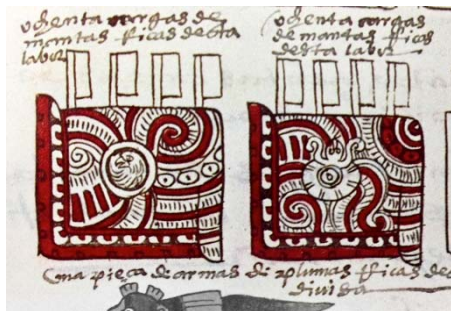 ochenta cargas de
mantas Ricas desta
labor
ochenta cargas
de mantas Ricas
desta labor
Una pieça de armas de plumas Ricas
divisa